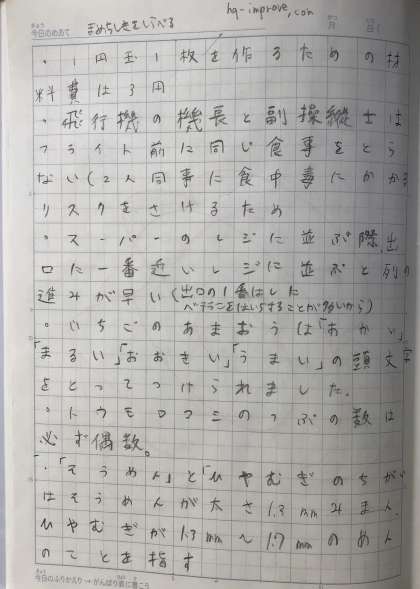 今日のめあて まめちしきをしらべる
hq-improve.com
月 日
・1円玉1枚を作るための材
料費は3円
・飛行機の機長と副操縦士は
フライト前に同じ食事をとら
ない(2人同事に食中毒にかかる
リスクをさけるため
・スーパーのレジに並ぶ際、出
口に一番近いレジに並ぶと列の
進みが早い(出口の1番はしに
ベテランをはいちすることが多いから)
・いちごのあまおうは「あかい」
「まるい」「おおきい」「うまい」の頭文字
をとってつけられました。
・トウモロコシのつぶの数は
必ず偶数。
・「そうめん」と「ひやむぎのちがい
はそうめんが太さ1.3mmみまん、
ひやむぎが1.3mm〜1.7mmのめん
のことを指す
今日のふりかえり→がんばり表に書こう